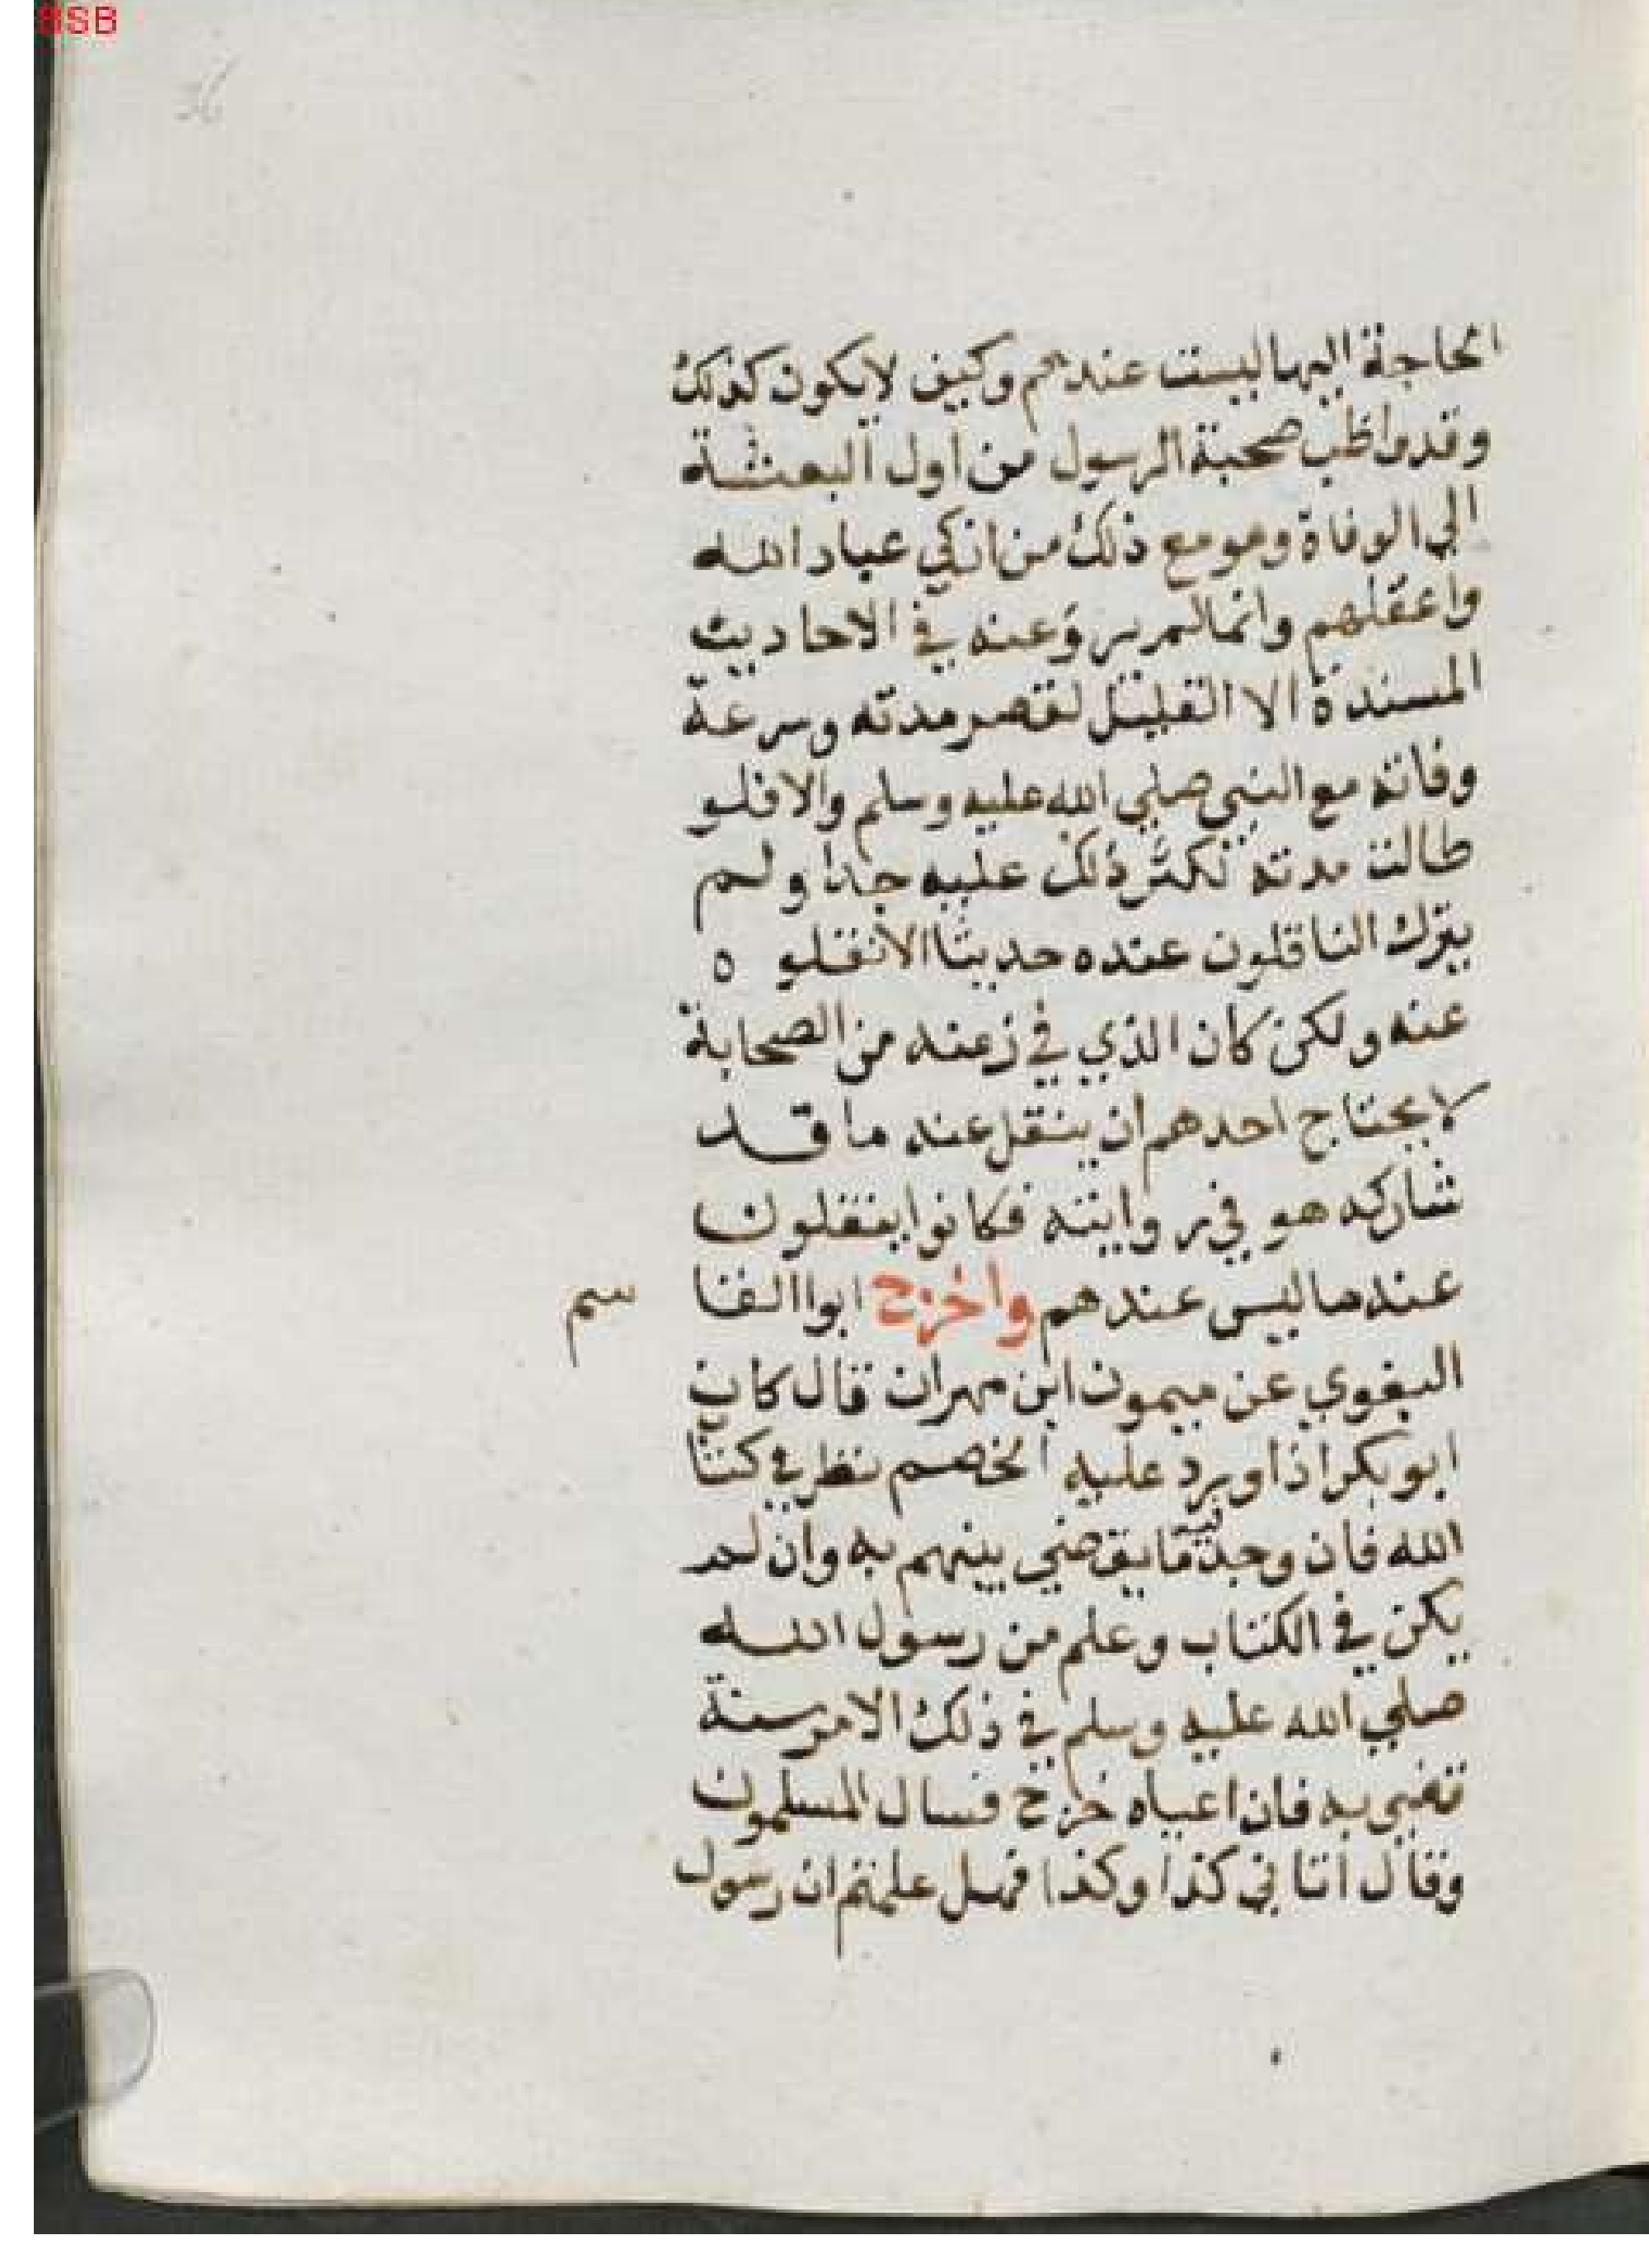 BSB
26
الحاجة اليها ليست عندهم وكيف لا يكون كذلك
وقد واظب صحبة الرسول من اول البعثة
الي الوفاة وهو مع ذلك من ازكي عباد الله
واعقلهم وانما لم يروعنه في الاحاديث
المسندة الا القليل لقصر مدته وسرعة
وفاته مع النبي صلي الله عليه وسلم والا فلو
طالت مدته لكثر ذلك عليه جدا ولم
يترك الناقلون عنده حديثا الا نقلو ه
عنه ولكن كان الذي في زعنه من الصحابة
لا يحتاج احدهم ان ينقل عنه ما قد
شاركه هو في روايته فكانوا ينقلون
عنه ما ليس عندهم واخرج ابوا القا سم
البغوي عن ميمون ابن مهران قال كان
ابو بكر اذا ويرد عليه الخصم نظر في كتا
الله فان وجد فيه ما يقضي بينهم به وان لم
يكن في الكتاب وعلم من رسول الله
صلي الله عليه وسلم في ذلك الامر سنة
تقضي به فان اعياه خرج فسال المسلمون
وقال اتاني كذا وكذا فهل علمتم ان رسول